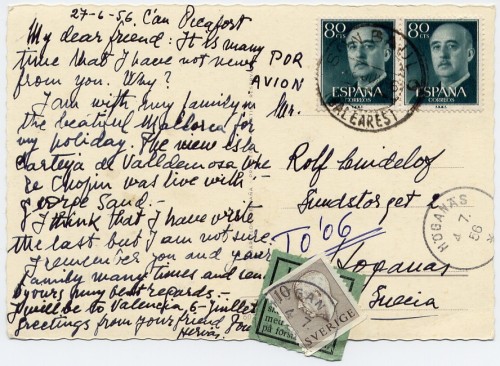 27-6-56. C'an Picafort
My dear friend: It is many
time that I have not news
from you. Why?
I am with my family in
the beautiful Mallorca for
my holiday. The view is la
Carteya de Valldemosa whe
re Chopin was live with
George Sand.-
I think that I have write
the last but I am not sure.
I remember you and your
family many times and
yours my best regards.-
I will be to Valencia 6-Juillet
Greetings from your friend
POR
AVION
Mr.
Rolf
Sundstorget 2
TO '06
Suecia
80
CTS
ESPAÑA
CORREOS
80
CTS
ESPAÑA
CORREOS
BALEARES
HÖGANÄS
4 7.
56
SVERIGE